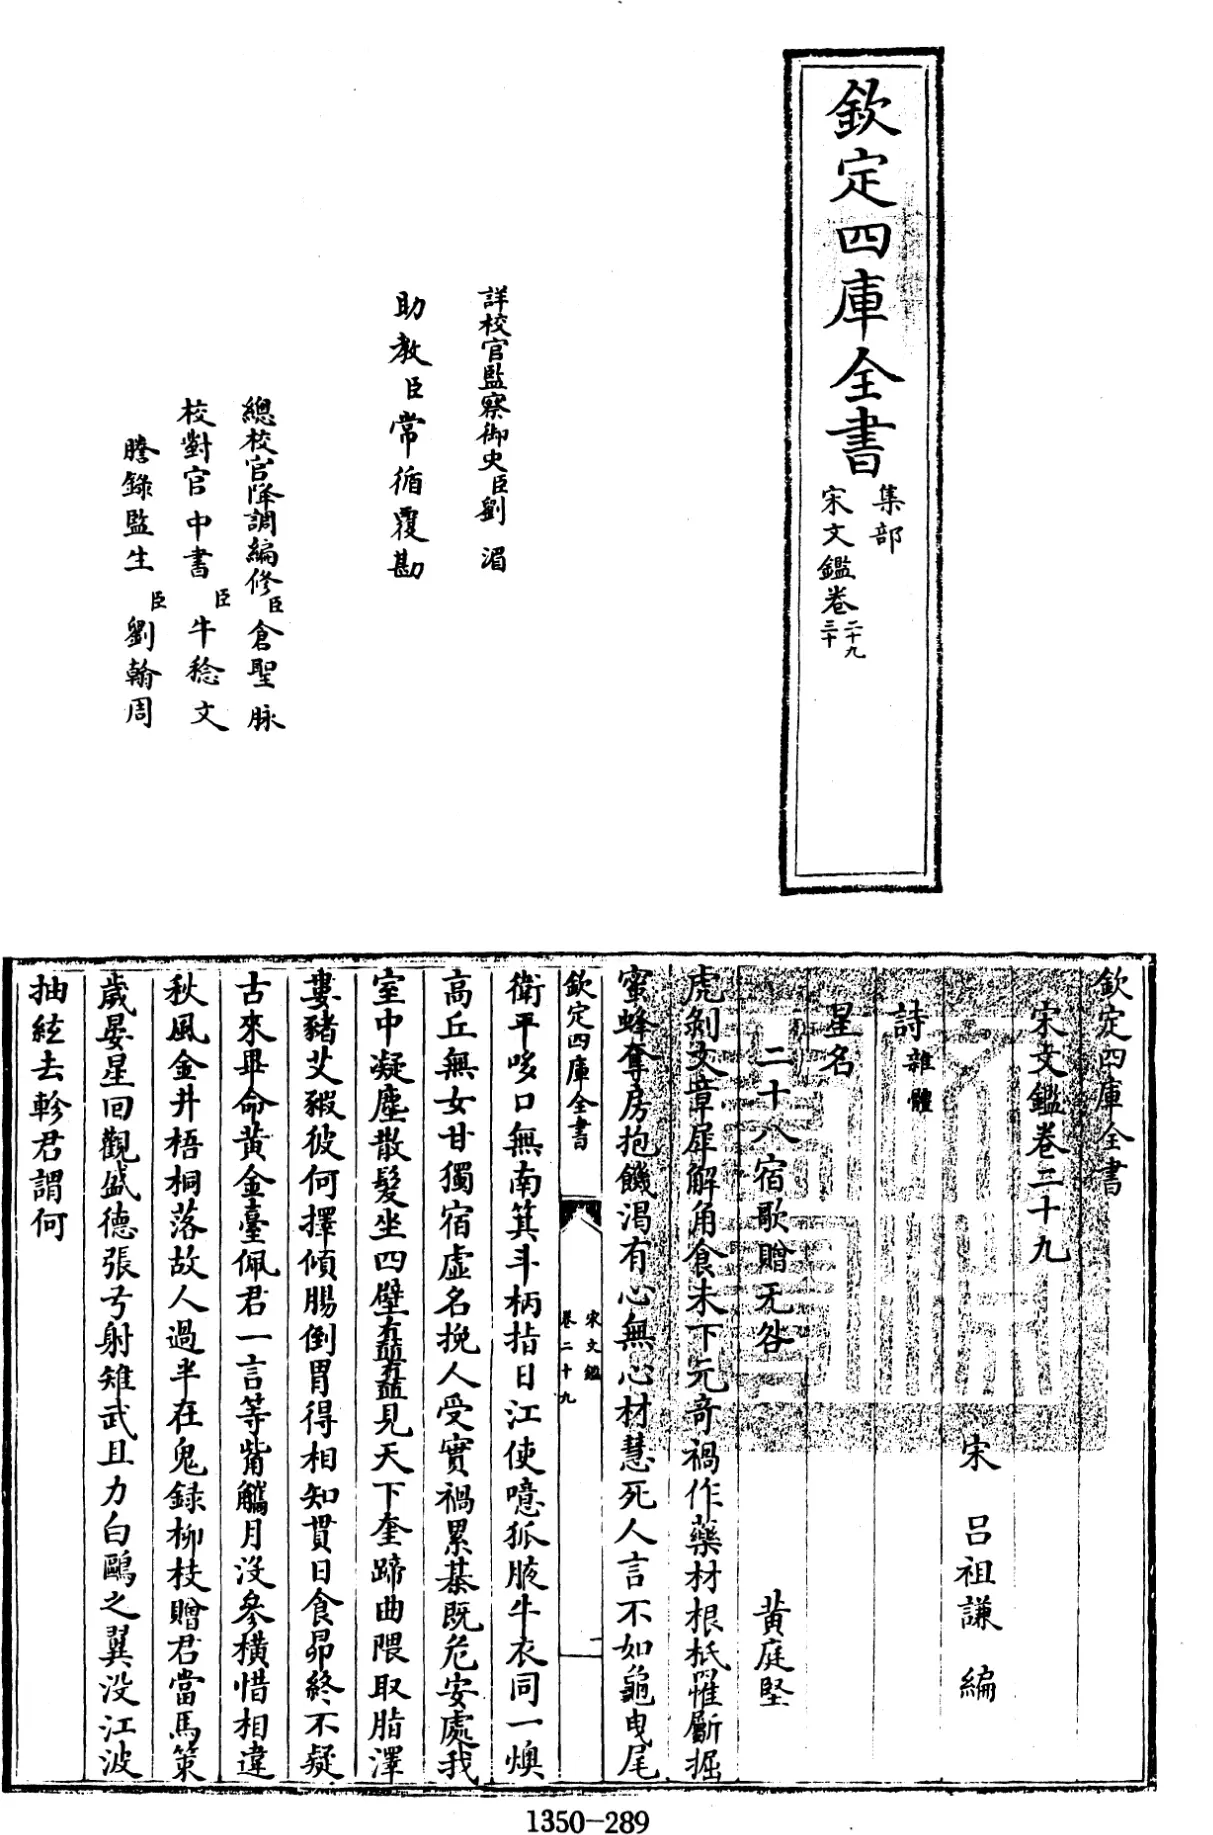 欽定四庫全書
集部
宋文鑑卷二十九
三十
詳校官監察御史臣劉湄
助教臣常循覆勘
總校官降調編修臣倉聖脉
校對官中書臣牛稔文
謄錄監生臣劉翰周
欽定四庫全書
宋文鑑卷二十九
宋 呂祖謙 編
詩雜體
星名
二十八宿歌贈无咎 黃庭堅
虎剝文章犀解角食未下亢奇禍作藥材根柢罹斸掘
蜜蜂奪房抱饑渴有心無心材慧死人言不如龜曳尾
欽定四庫全書
宋文鑑
卷二十九
一
衛平哆口無南箕斗柄指日江使噫狐腋牛衣同一燠
高丘無女甘獨宿虛名挽人受實禍累棊既危安處我
室中凝塵散髮坐四壁矗矗見天下奎蹄曲隈取脂澤
婁豬艾豭彼何擇傾腸倒胃得相知貫日食昴終不疑
古來畢命黃金臺佩君一言等觜觿月沒參橫惜相違
秋風金井梧桐落故人過半在鬼録柳枝贈君當馬策
歲晏星回觀盛德張弓射雉武且力白鷗之翼沒江波
抽絃去軫君謂何
1350-289